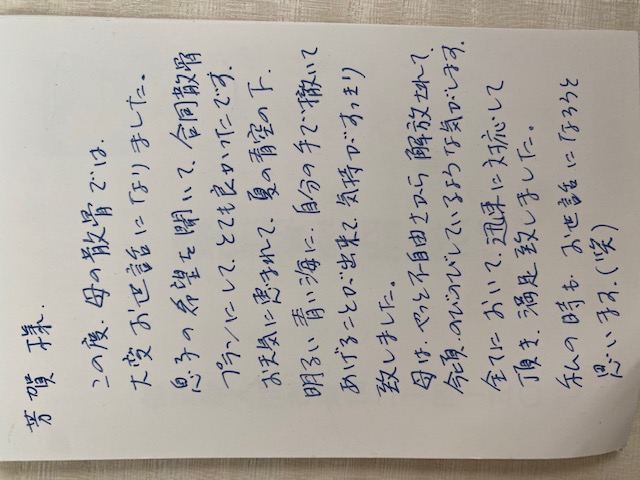 芳賀 様.
この度、母の散骨では、
大変お世話になりました。
息子の希望を聞いて、合同散骨
プランにして、とても良かったです。
お天気に恵まれて、夏の青空の下、
明るい青い海に、自分の手で撒いて
あげることが出来て、気持がすっきり
致しました。
母は、やっと不自由さから解放されて、
今頃、のびのびしているような気がします。
全てにおいて、迅速に対応して
頂き、満足致しました。
私の時も、お世話になろうと
思います。(笑)